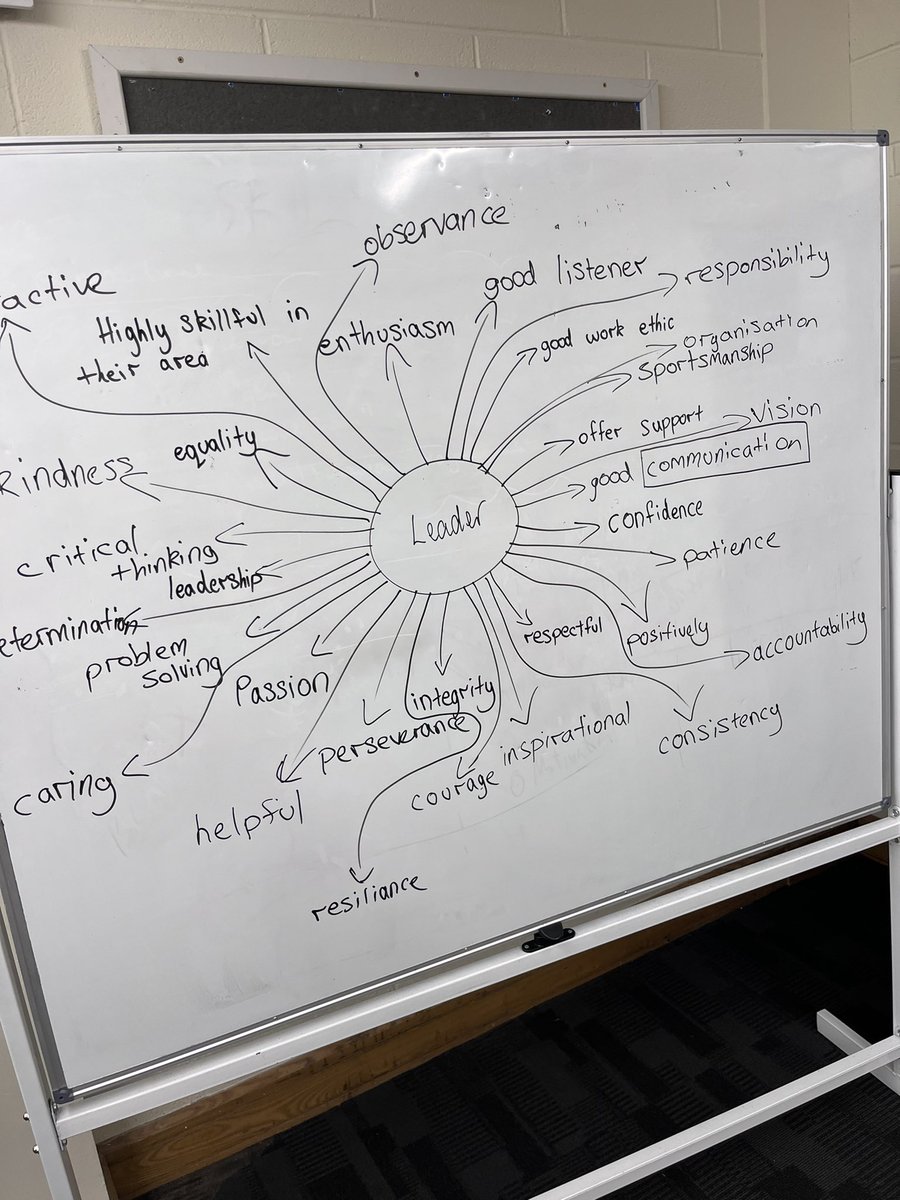 observance
good listener
responsibility
active
Highly skillful in
their area
enthusiasm
good work ethic
organisation
sportsmanship
offer support
Vision
equality
good communication
kindness
Leader
confidence
critical
thinking
patience
leadership
determination
respectful
positively
accountability
problem
solving
Passion
integrity
perseverance
inspirational
consistency
caring
courage
helpful
resiliance